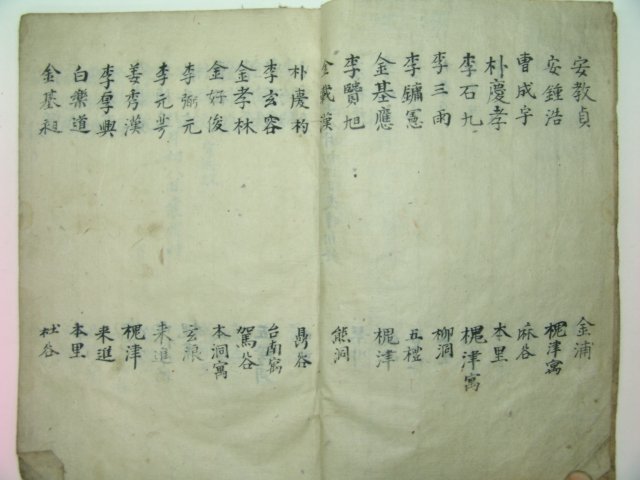 安教貞 金浦
安鍾浩 槐津寓
曺成宇 麻谷
朴慶孝 本里
李石九 槐津寓
李三雨 柳洞
李鏞憲 五檍
金基應 槐津
李贊旭 熊洞
金載漢
朴慶杓 鼎谷
李玄容 台南寓
金孝林 駕谷
金好俊 本洞寓
李弼元 玄浪
李元 来進
姜秀漢 槐津
李厚興 来進
白樂道 本里
金基 杜谷